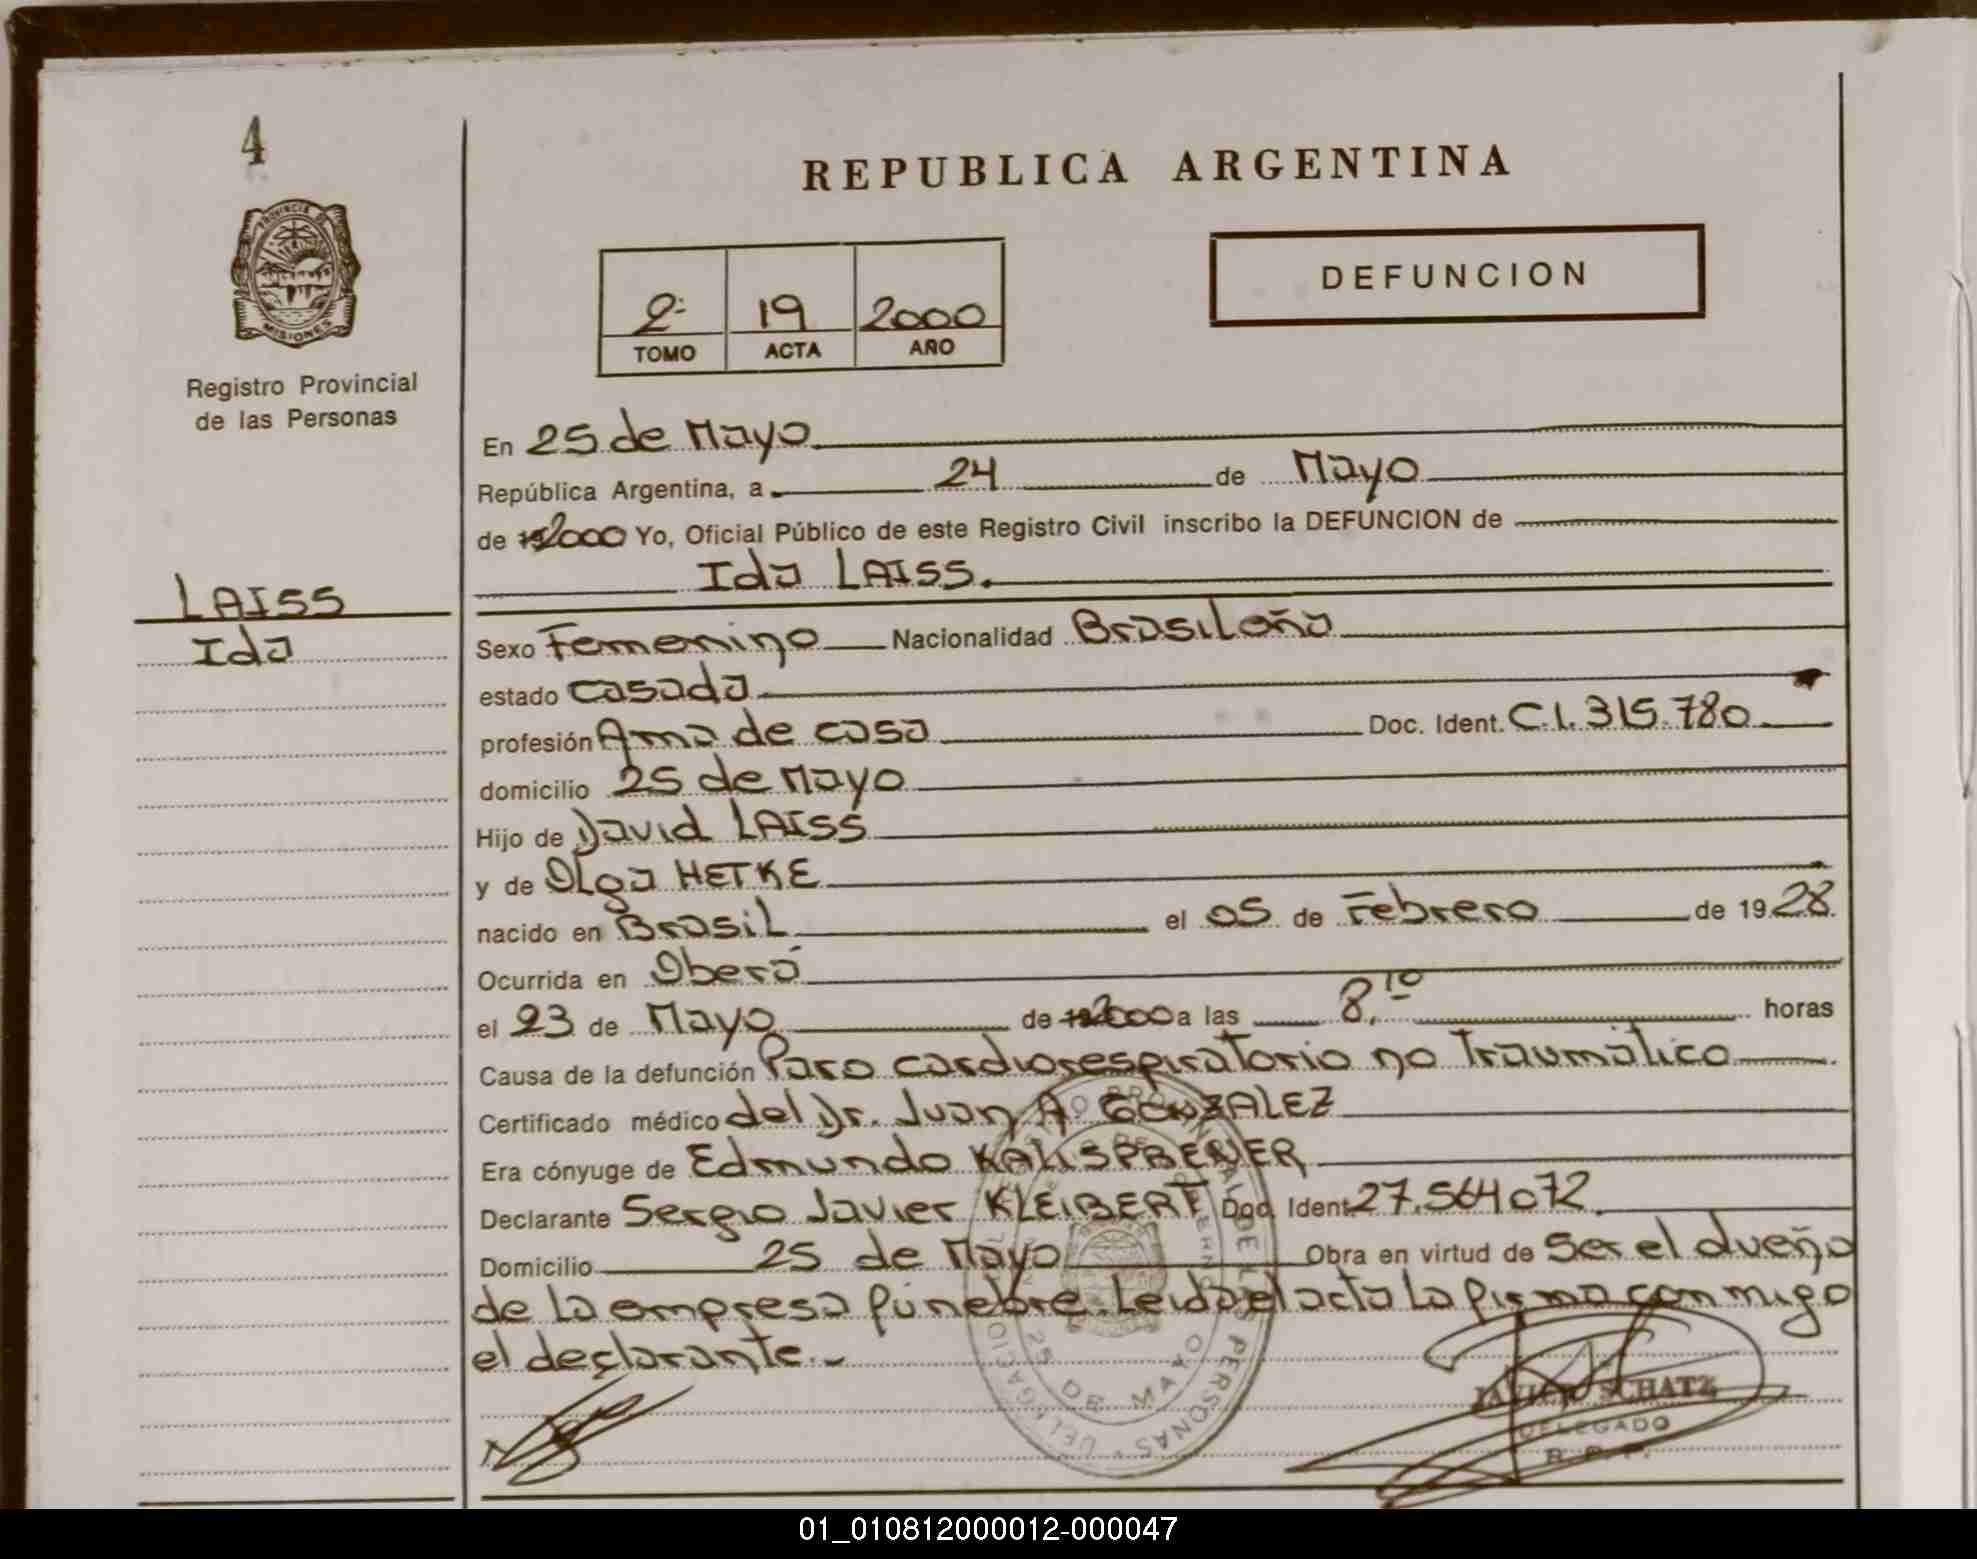 4
REPUBLICA ARGENTINA
PROVINCIA DE
MISIONES
DEFUNCION
2º 19 2000
TOMO ACTA AÑO
Registro Provincial
de las Personas
En 25 de Mayo
República Argentina, a 24 de Mayo
de 192000 Yo, Oficial Público de este Registro Civil inscribo la DEFUNCION de
Ida LAISS.
LAISS
Ida
Sexo Femenino Nacionalidad Brasileña
estado casada
profesión Ama de casa Doc. Ident. C.I. 315.780
domicilio 25 de Mayo
Hijo de David LAISS
y de Olga HETKE
nacido en Brasil el 05 de Febrero de 1928
Ocurrida en Oberá
el 23 de Mayo de 192000 a las 8,10 horas
Causa de la defunción Paro cardiorespiratorio no Traumático
Certificado médico del Dr. Juan A. GONZALEZ
Era cónyuge de Edmundo
Declarante Sergio Javier KLEIBERT Doc. Ident. 27.564.072
Domicilio 25 de Mayo Obra en virtud de Ser el dueño
de la empresa fúnebre. Leida el acta la firma conmigo
el declarante.-
25 DE MAYO
JAVIER SCHATZ
DELEGADO
R.P.P.
01_010812000012-000047